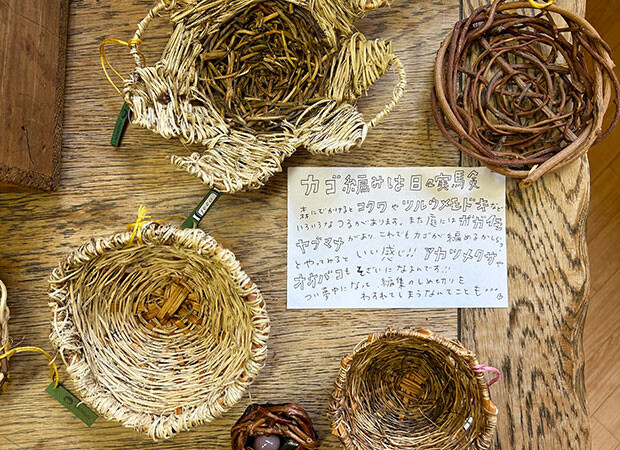 カゴ編みは日々実験
森にでかけるとコクワやツルウメモドキなど
いろいろなつるがあります。また庭にはガガイモ
ヤブマメがありこれでもカゴが編めるかしら。
とやってみるといい感じ!! アカツメクサや
オオバコもそざいになるんです!!
つい夢中になって 編集のしめ切りを
わすれてしまうなんてことも・・・